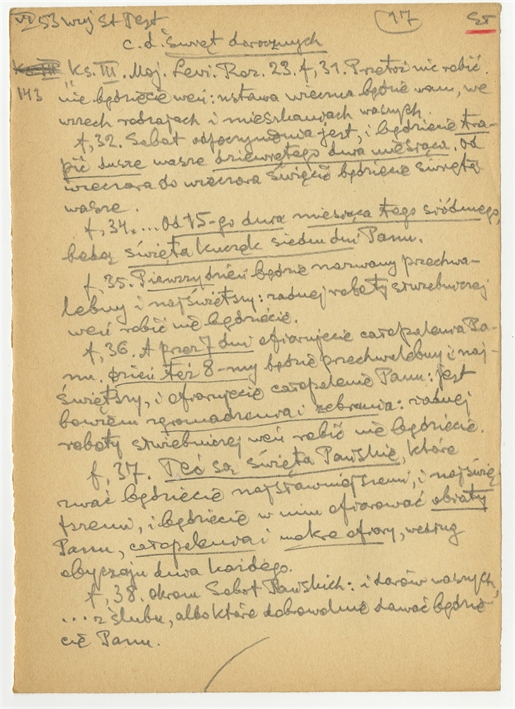 VI 53 wyj St Test 17 ST
c.d. Świąt dorocznych
Ks. III. Moj. Levi. Roz. 23. f, 31. Przetoż nic robić
143 nie będziecie weń: ustawa wieczna będzie wam, we
wszech rodzajach i mieszkaniach waszych.
f, 32. Sabat odpoczynienia jest, i będziecie tra-
pić dusze wasze dziewiątego dnia miesiąca. Od
wieczora do wieczora święcić będziecie święta
wasze.
f, 34. ... Od 15-go dnia miesiąca tego siódmego,
będą święta kuczek siedm dni Panu.
f, 35. Pierwszy dzień będzie nazwany przechwa-
lebny i najświętszy: żadnej roboty służebniczej
weń robić nie będziecie.
f, 36. A przez 7 dni ofiarujecie całopalenia Pa-
nu. Dzień też 8-my będzie przechwalebny i naj-
świętszy, i ofiarujecie całopalenie Panu: jest
bowiem zgromadzenia i zebrania: żadnej
roboty służebniczej weń robić nie będziecie.
f, 37. Teć są święta Pańskie, które
zwać będziecie najsławniejszemi, i najświę-
tszemi, i będziecie w nim ofiarować obiaty
Panu, całopalenia i mokre ofiary, według
obyczaju dnia każdego.
f, 38. okrom Sobot Pańskich: i darów waszych,
... z ślubu, albo które dobrowolnie dawać będzie-
cie Panu.